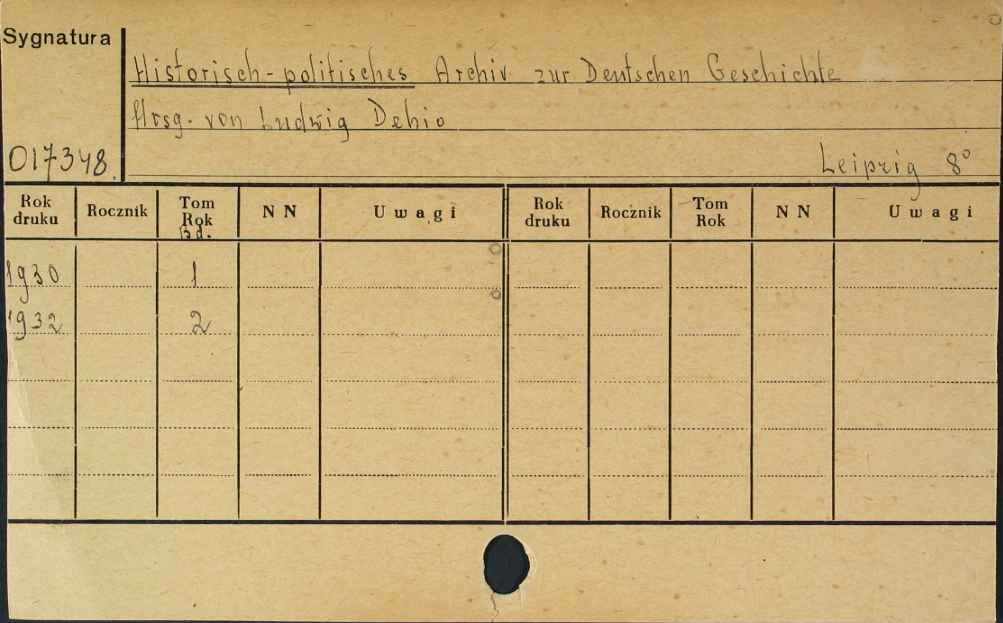 Sygnatura
Historisch-politisches Archiv zur Deutschen Geschichte
Hrsg. von Ludwig Dehio
017348.
Leipzig 8°
Rok druku Rocznik Tom Rok Bd. NN Uwagi Rok druku Rocznik Tom Rok NN Uwagi
1930 1
1932 2